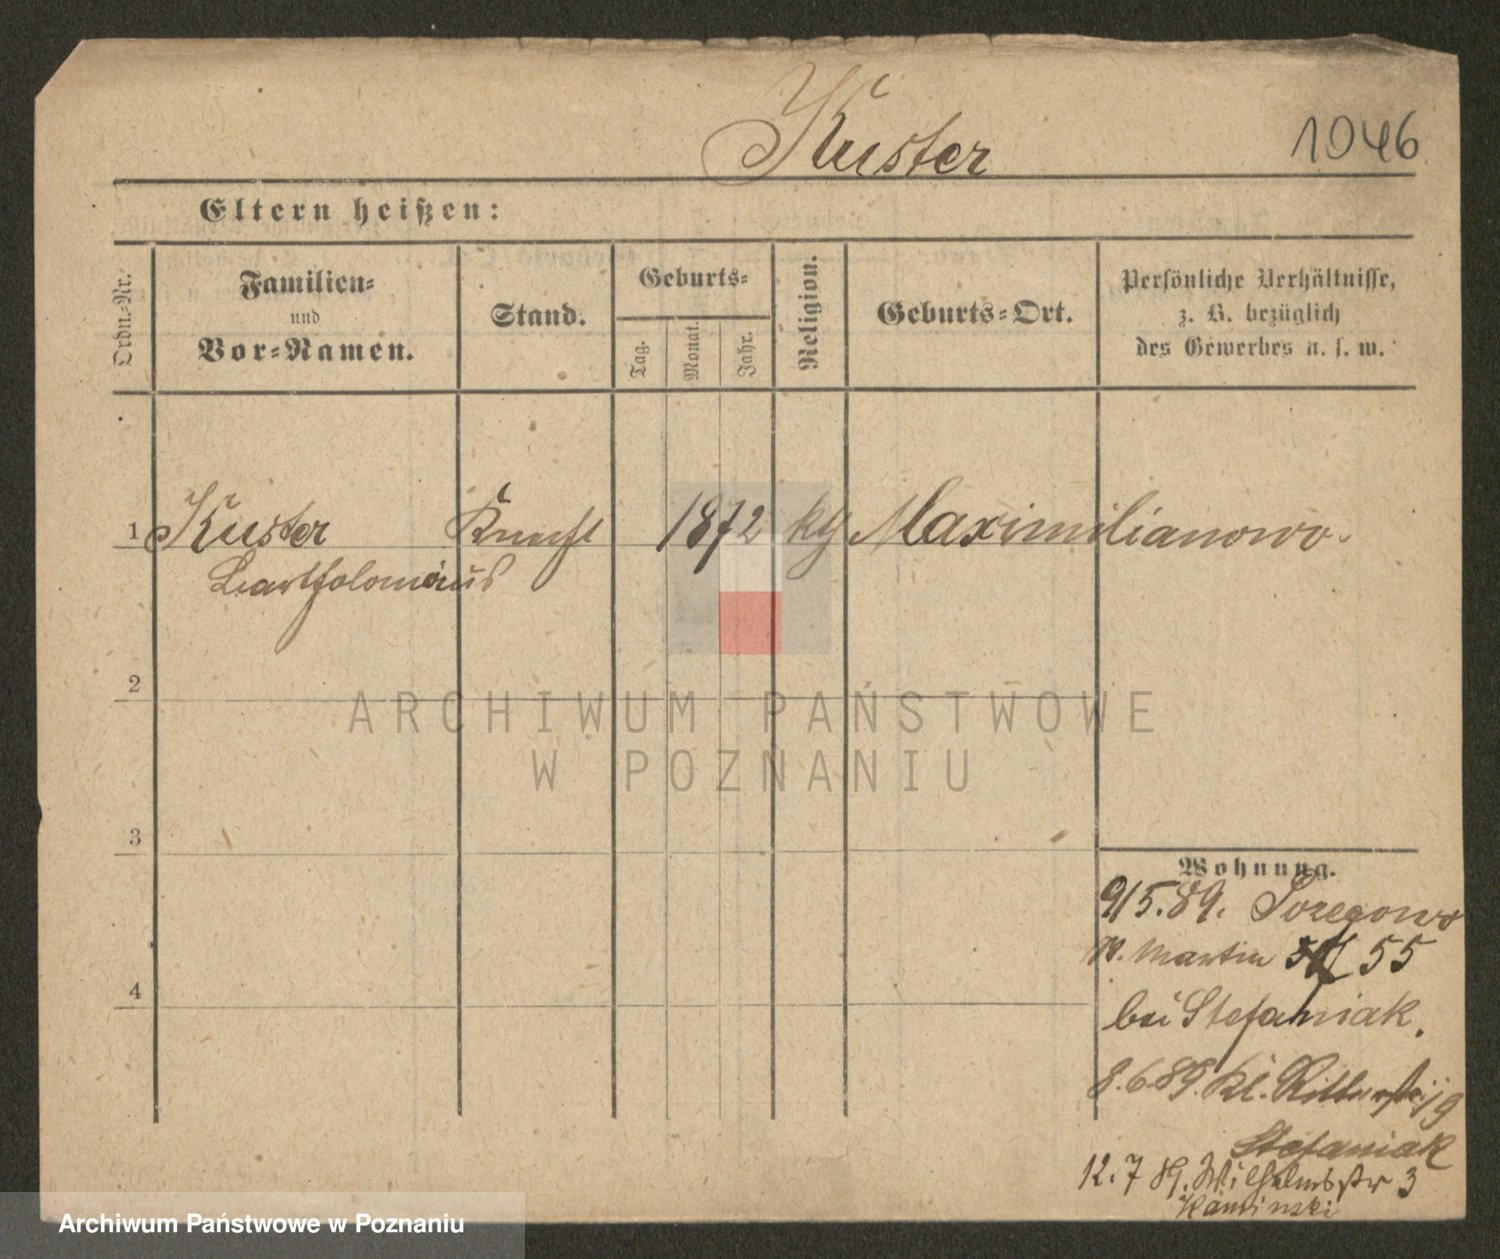 Kuster
1046
Eltern heißen:
Ordn.-Nr.
Familien-
und
Vor-Namen.
Stand.
Geburts-
Tag.
Monat.
Jahr.
Religion.
Geburts-Ort.
Persönliche Verhältnisse,
z. B. bezüglich
des Gewerbes u. s. w.
1 Kuster Knecht 1872 kg Maximilianowo.
Bartholomäus
2
ARCHIWUM PAŃSTWOWE
W POZNANIU
3
Wohnung.
9/5.89.
Martin 55
4
bei Stefaniak.
8.6.89. Kl. Ritterstr 9
Stefaniak
12.7 89. Wilhelmsstr 3
Kaminski
Archiwum Państwowe w Poznaniu